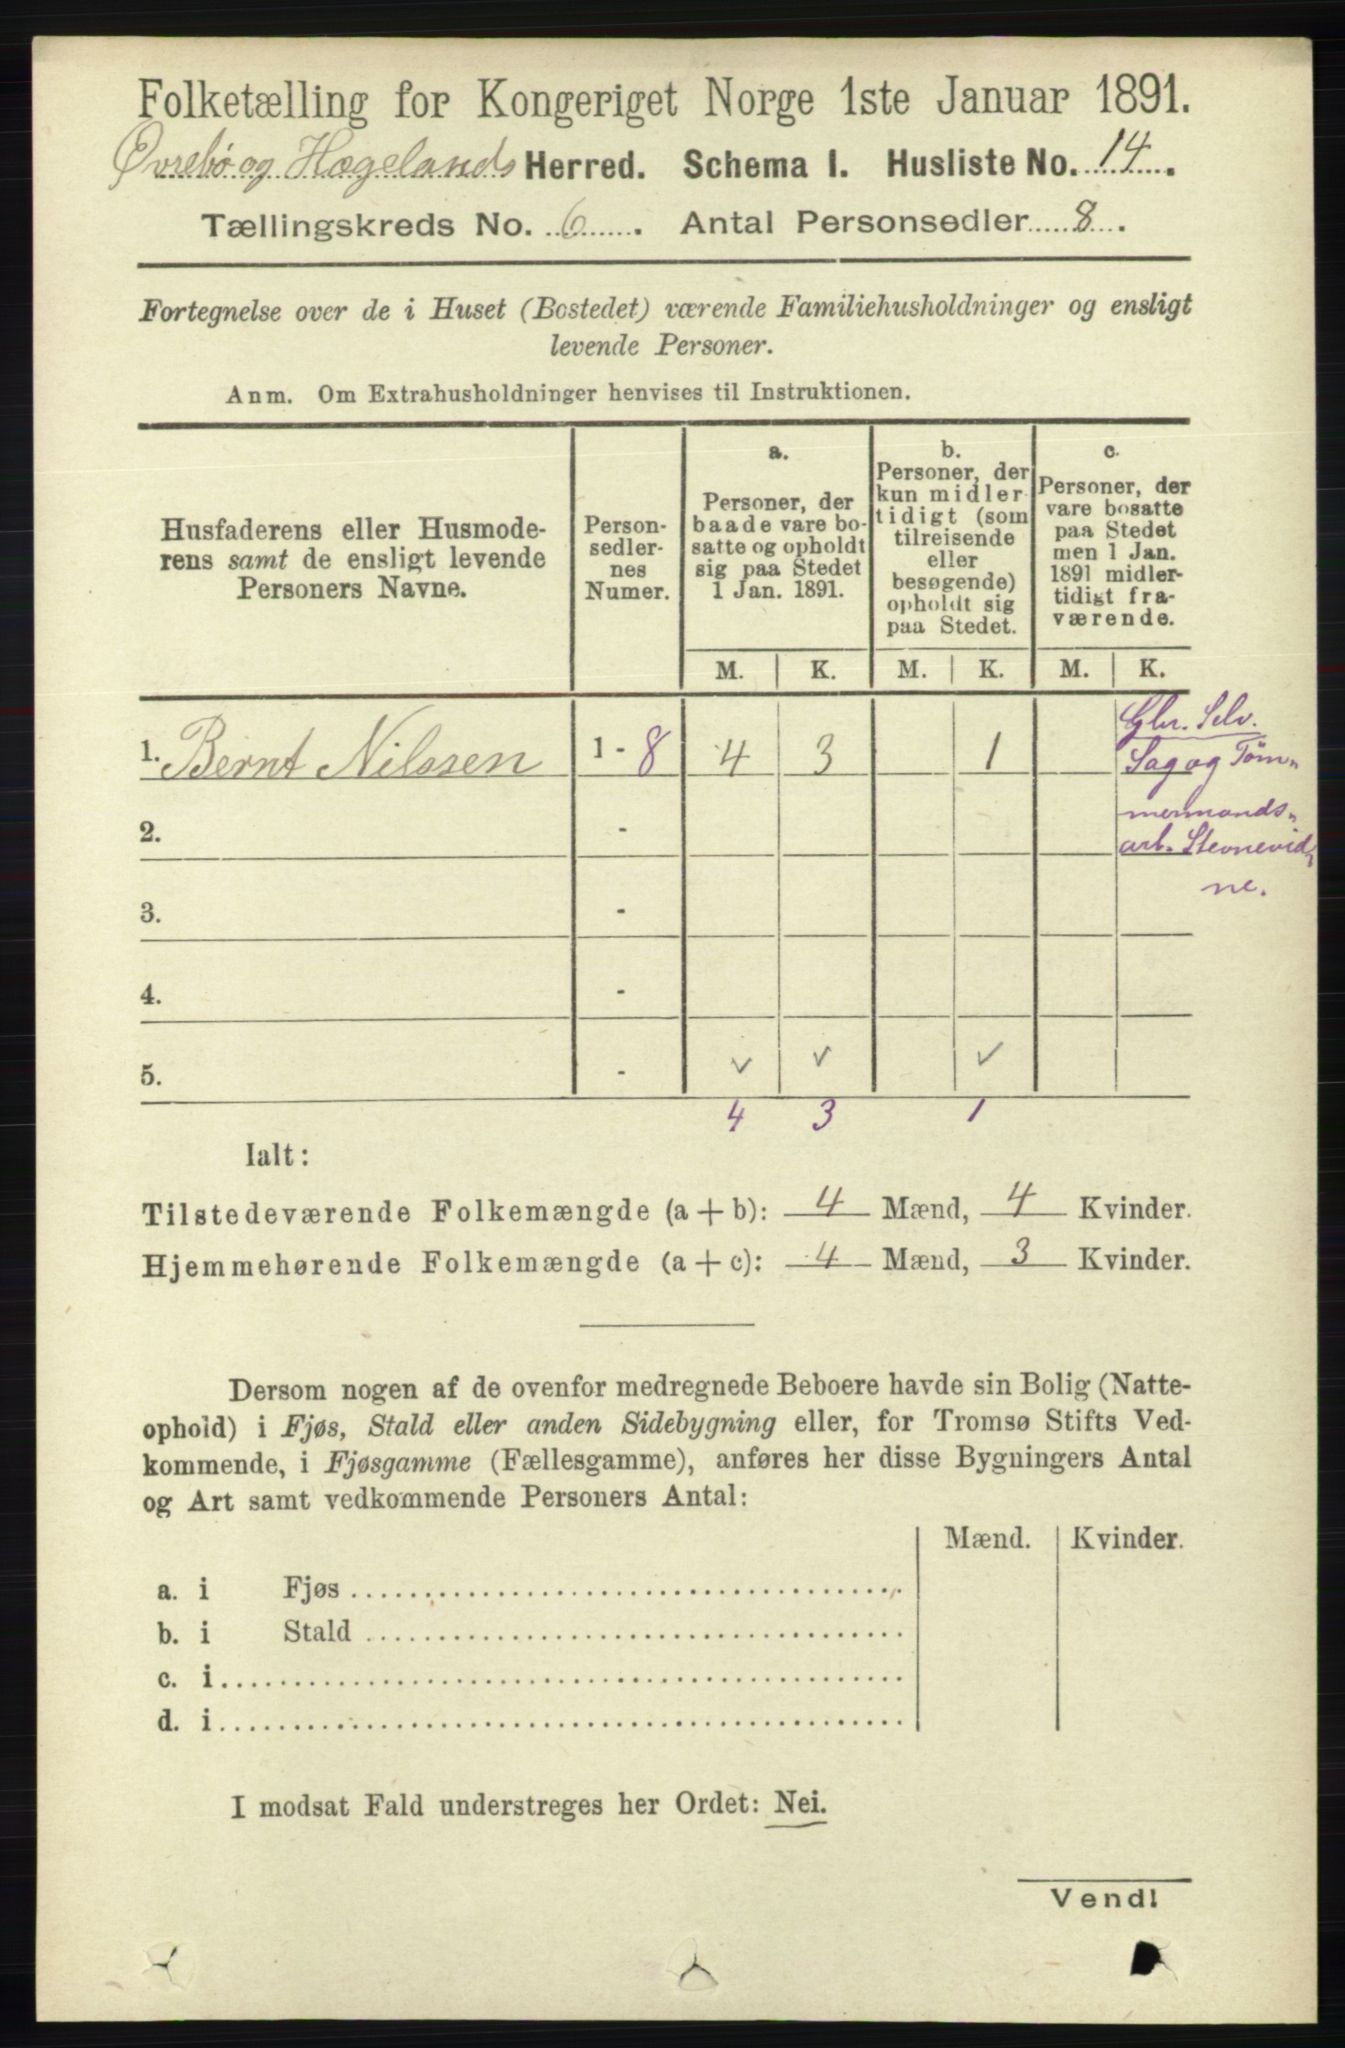 Folketælling for Kongeriget Norge 1ste Januar 1891.
Øvrebø og Hægelands Herred. Schema I. Husliste No. 14.
Tællingskreds No. 6. Antal Personsedler 8.
Fortegnelse over de i Huset (Bostedet) værende Familiehusholdninger og ensligt
levende Personer.
Anm. Om Extrahusholdninger henvises til Instruktionen.
Husfaderens eller Husmode-
rens samt de ensligt levende
Personers Navne.
Person-
sedler-
nes
Numer.
a.
Personer, der
baade vare bo-
satte og opholdt
sig paa Stedet
1 Jan. 1891.
b.
Personer, der
kun midler-
tidigt (som
tilreisende
eller
besøgende)
opholdt sig
paa Stedet.
c.
Personer, der
vare bosatte
paa Stedet
men 1 Jan.
1891 midler-
tidigt fra-
værende.
M. K. M. K. M. K.
1. Bernt Nilssen 1 - 8 4 3 1
Gbr. Selv.
Sag og Tøm-
mermands-
arb. Stevnevid-
ne.
2. -
3. -
4. -
5. - ✓ ✓ ✓
4 3 1
Ialt:
Tilstedeværende Folkemængde (a + b): 4 Mænd, 4 Kvinder.
Hjemmehørende Folkemængde (a + c): 4 Mænd, 3 Kvinder.
Dersom nogen af de ovenfor medregnede Beboere havde sin Bolig (Natte-
ophold) i Fjøs, Stald eller anden Sidebygning eller, for Tromsø Stifts Ved-
kommende, i Fjøsgamme (Fællesgamme), anføres her disse Bygningers Antal
og Art samt vedkommende Personers Antal:
Mænd. Kvinder.
a. i Fjøs
b. i Stald
c. i
d. i
I modsat Fald understreges her Ordet: Nei.
Vend!